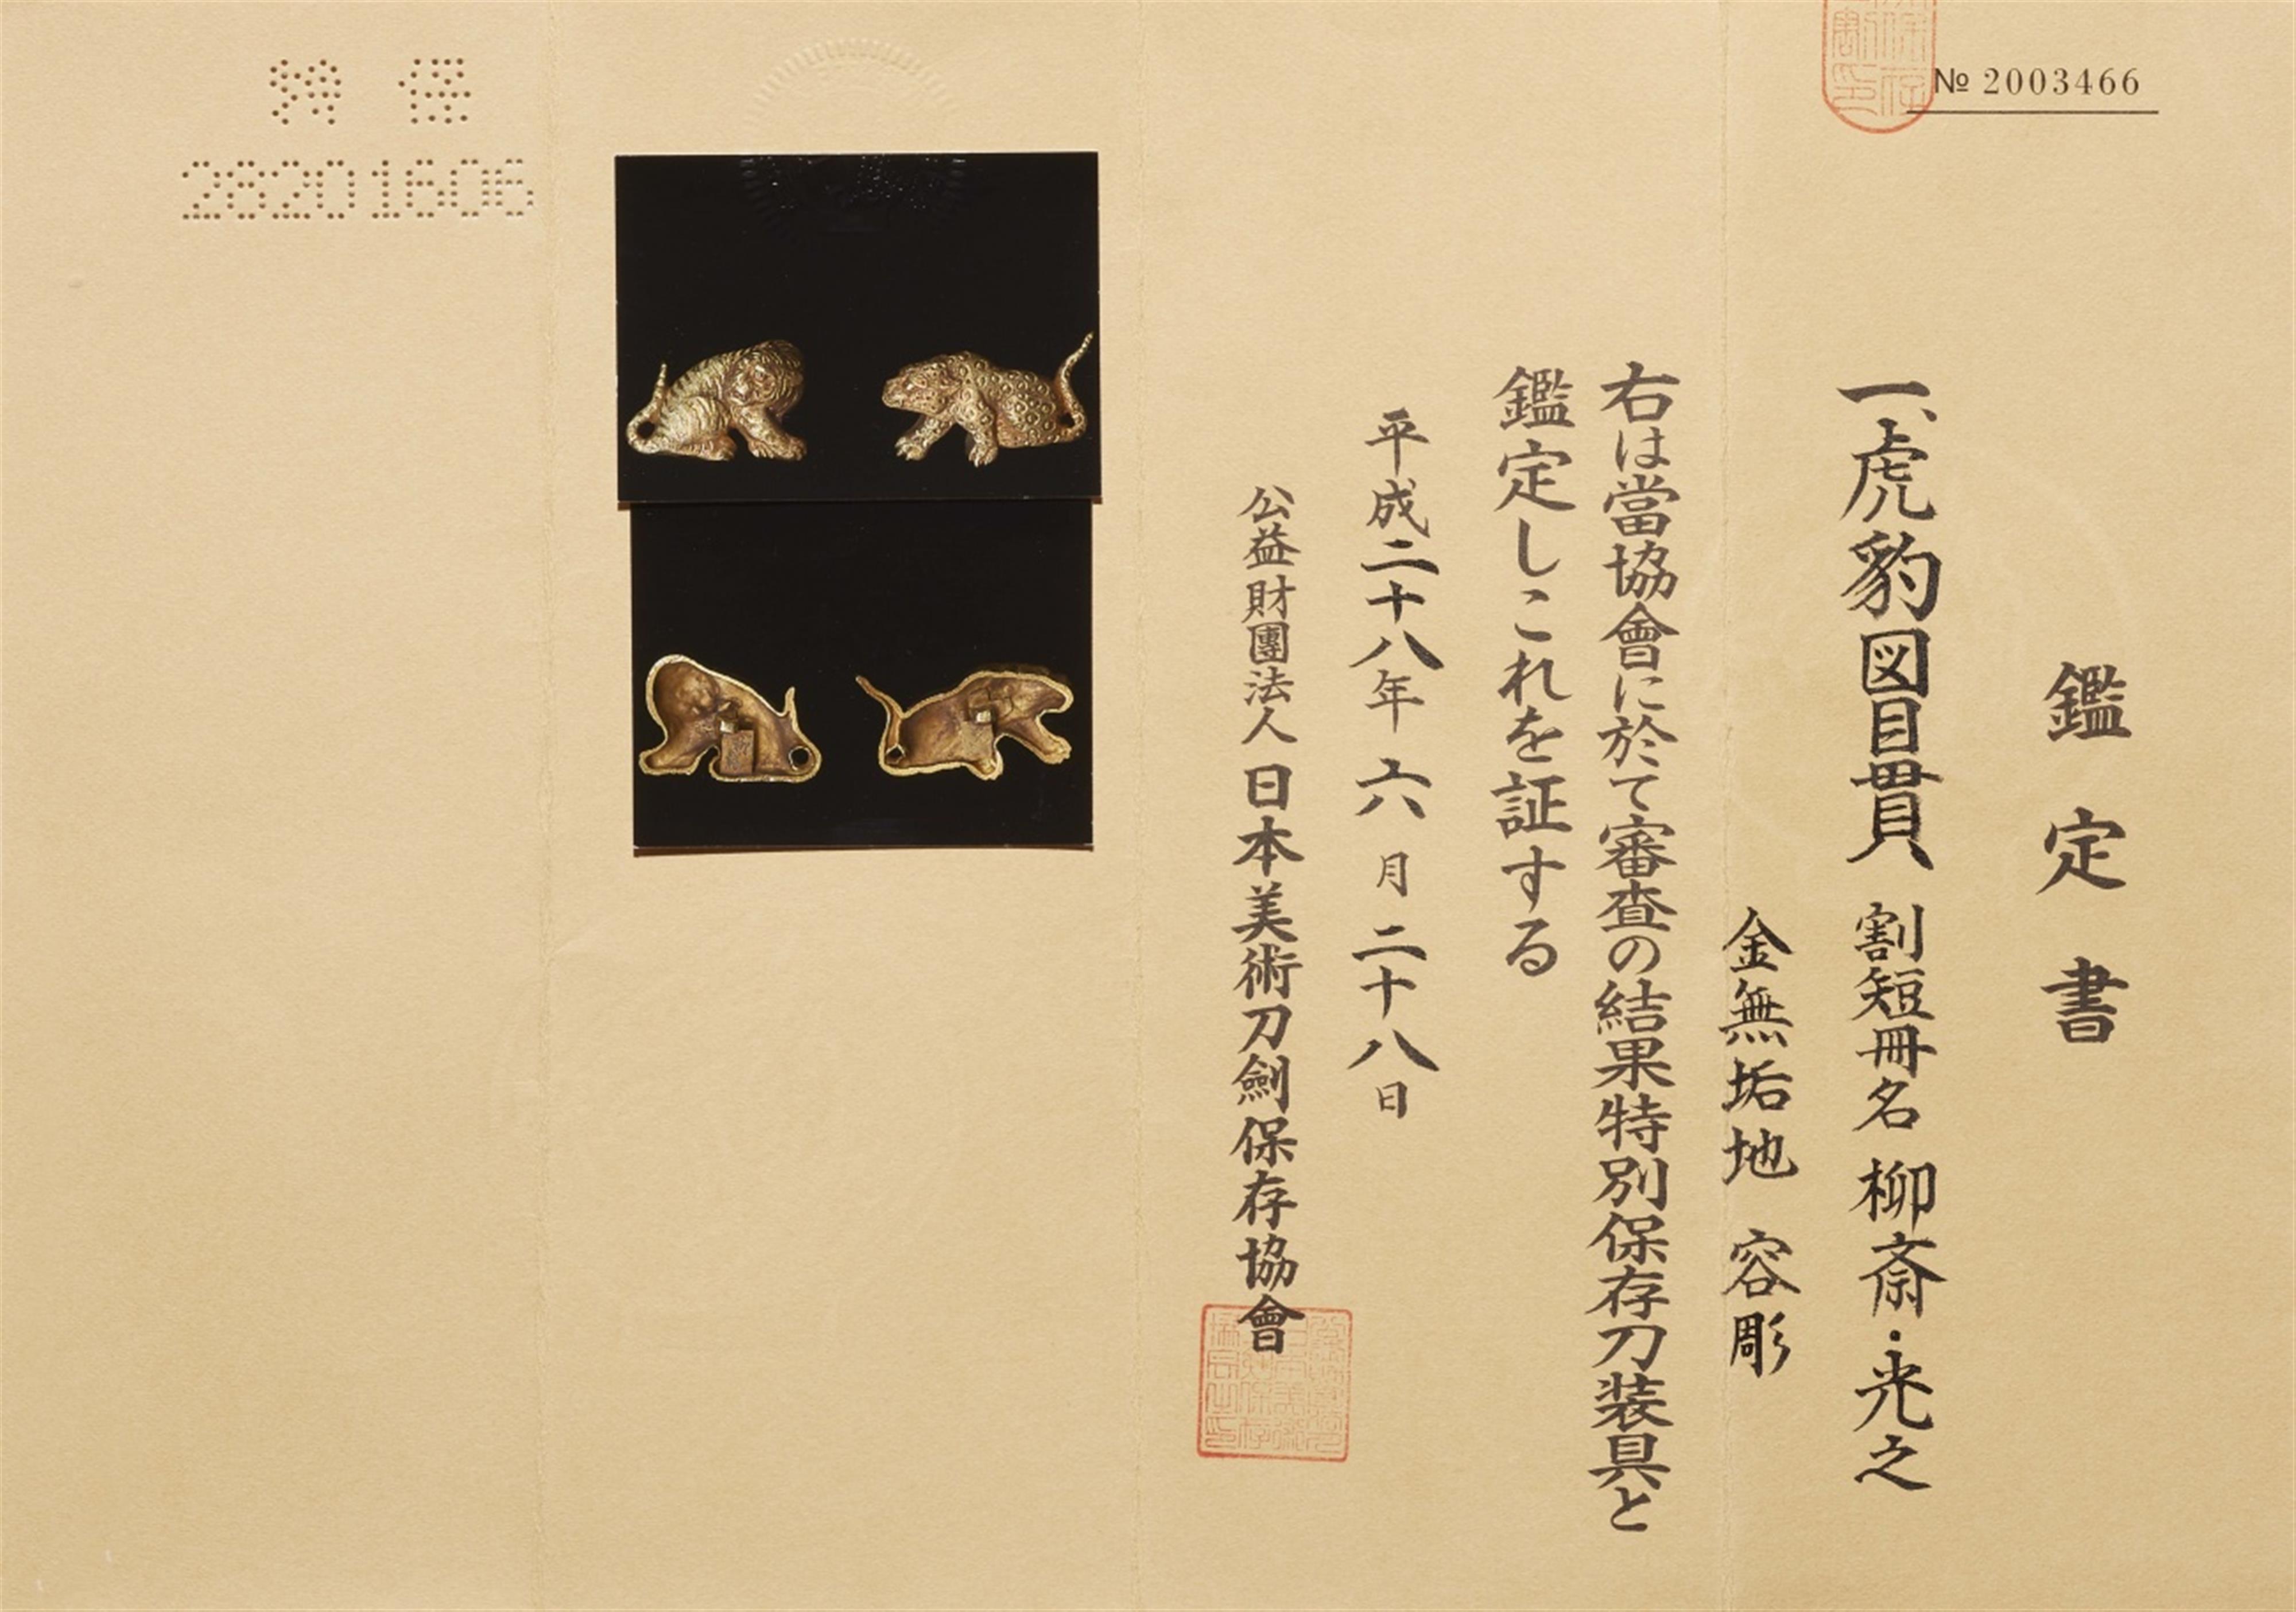 № 2003466
鑑定書
一、虎豹図目貫 割短冊名 柳斎・光之
金無垢地 容彫
右は當協會に於て審査の結果特別保存刀装具と
鑑定しこれを証する
平成二十八年六月二十八日
公益財團法人日本美術刀劍保存協會
特保
28201606